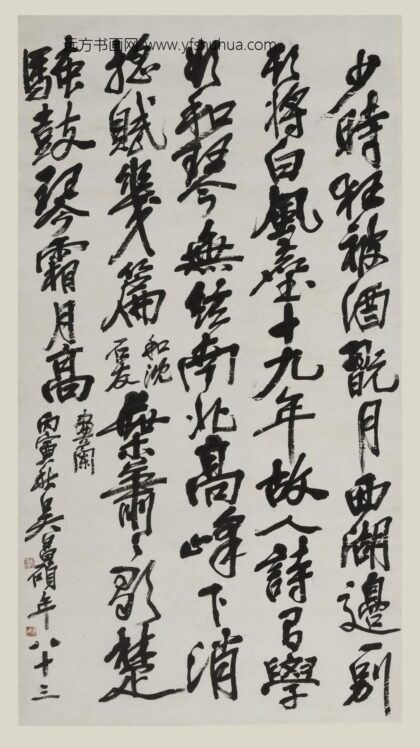 远方书画网 www.yfshuhua.com
少時狂被酒翫月西湖邊一別
將白風塵十九年故人詩學
和琴無絃南北高峰下消
搖賦幾篇和沈石友葉蕭蕭歌楚
騷鼓琴霜月高畫蘭
丙寅秋吳昌碩年八十三